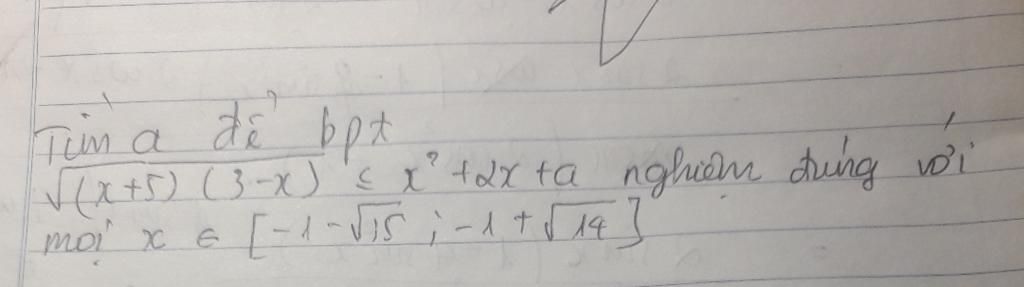 Tìm a để bpt
√(x+5)(3-x) ≤ x²+2x+a nghiệm đúng với
mọi x ∈ [-1-√15 ; -1+√14]